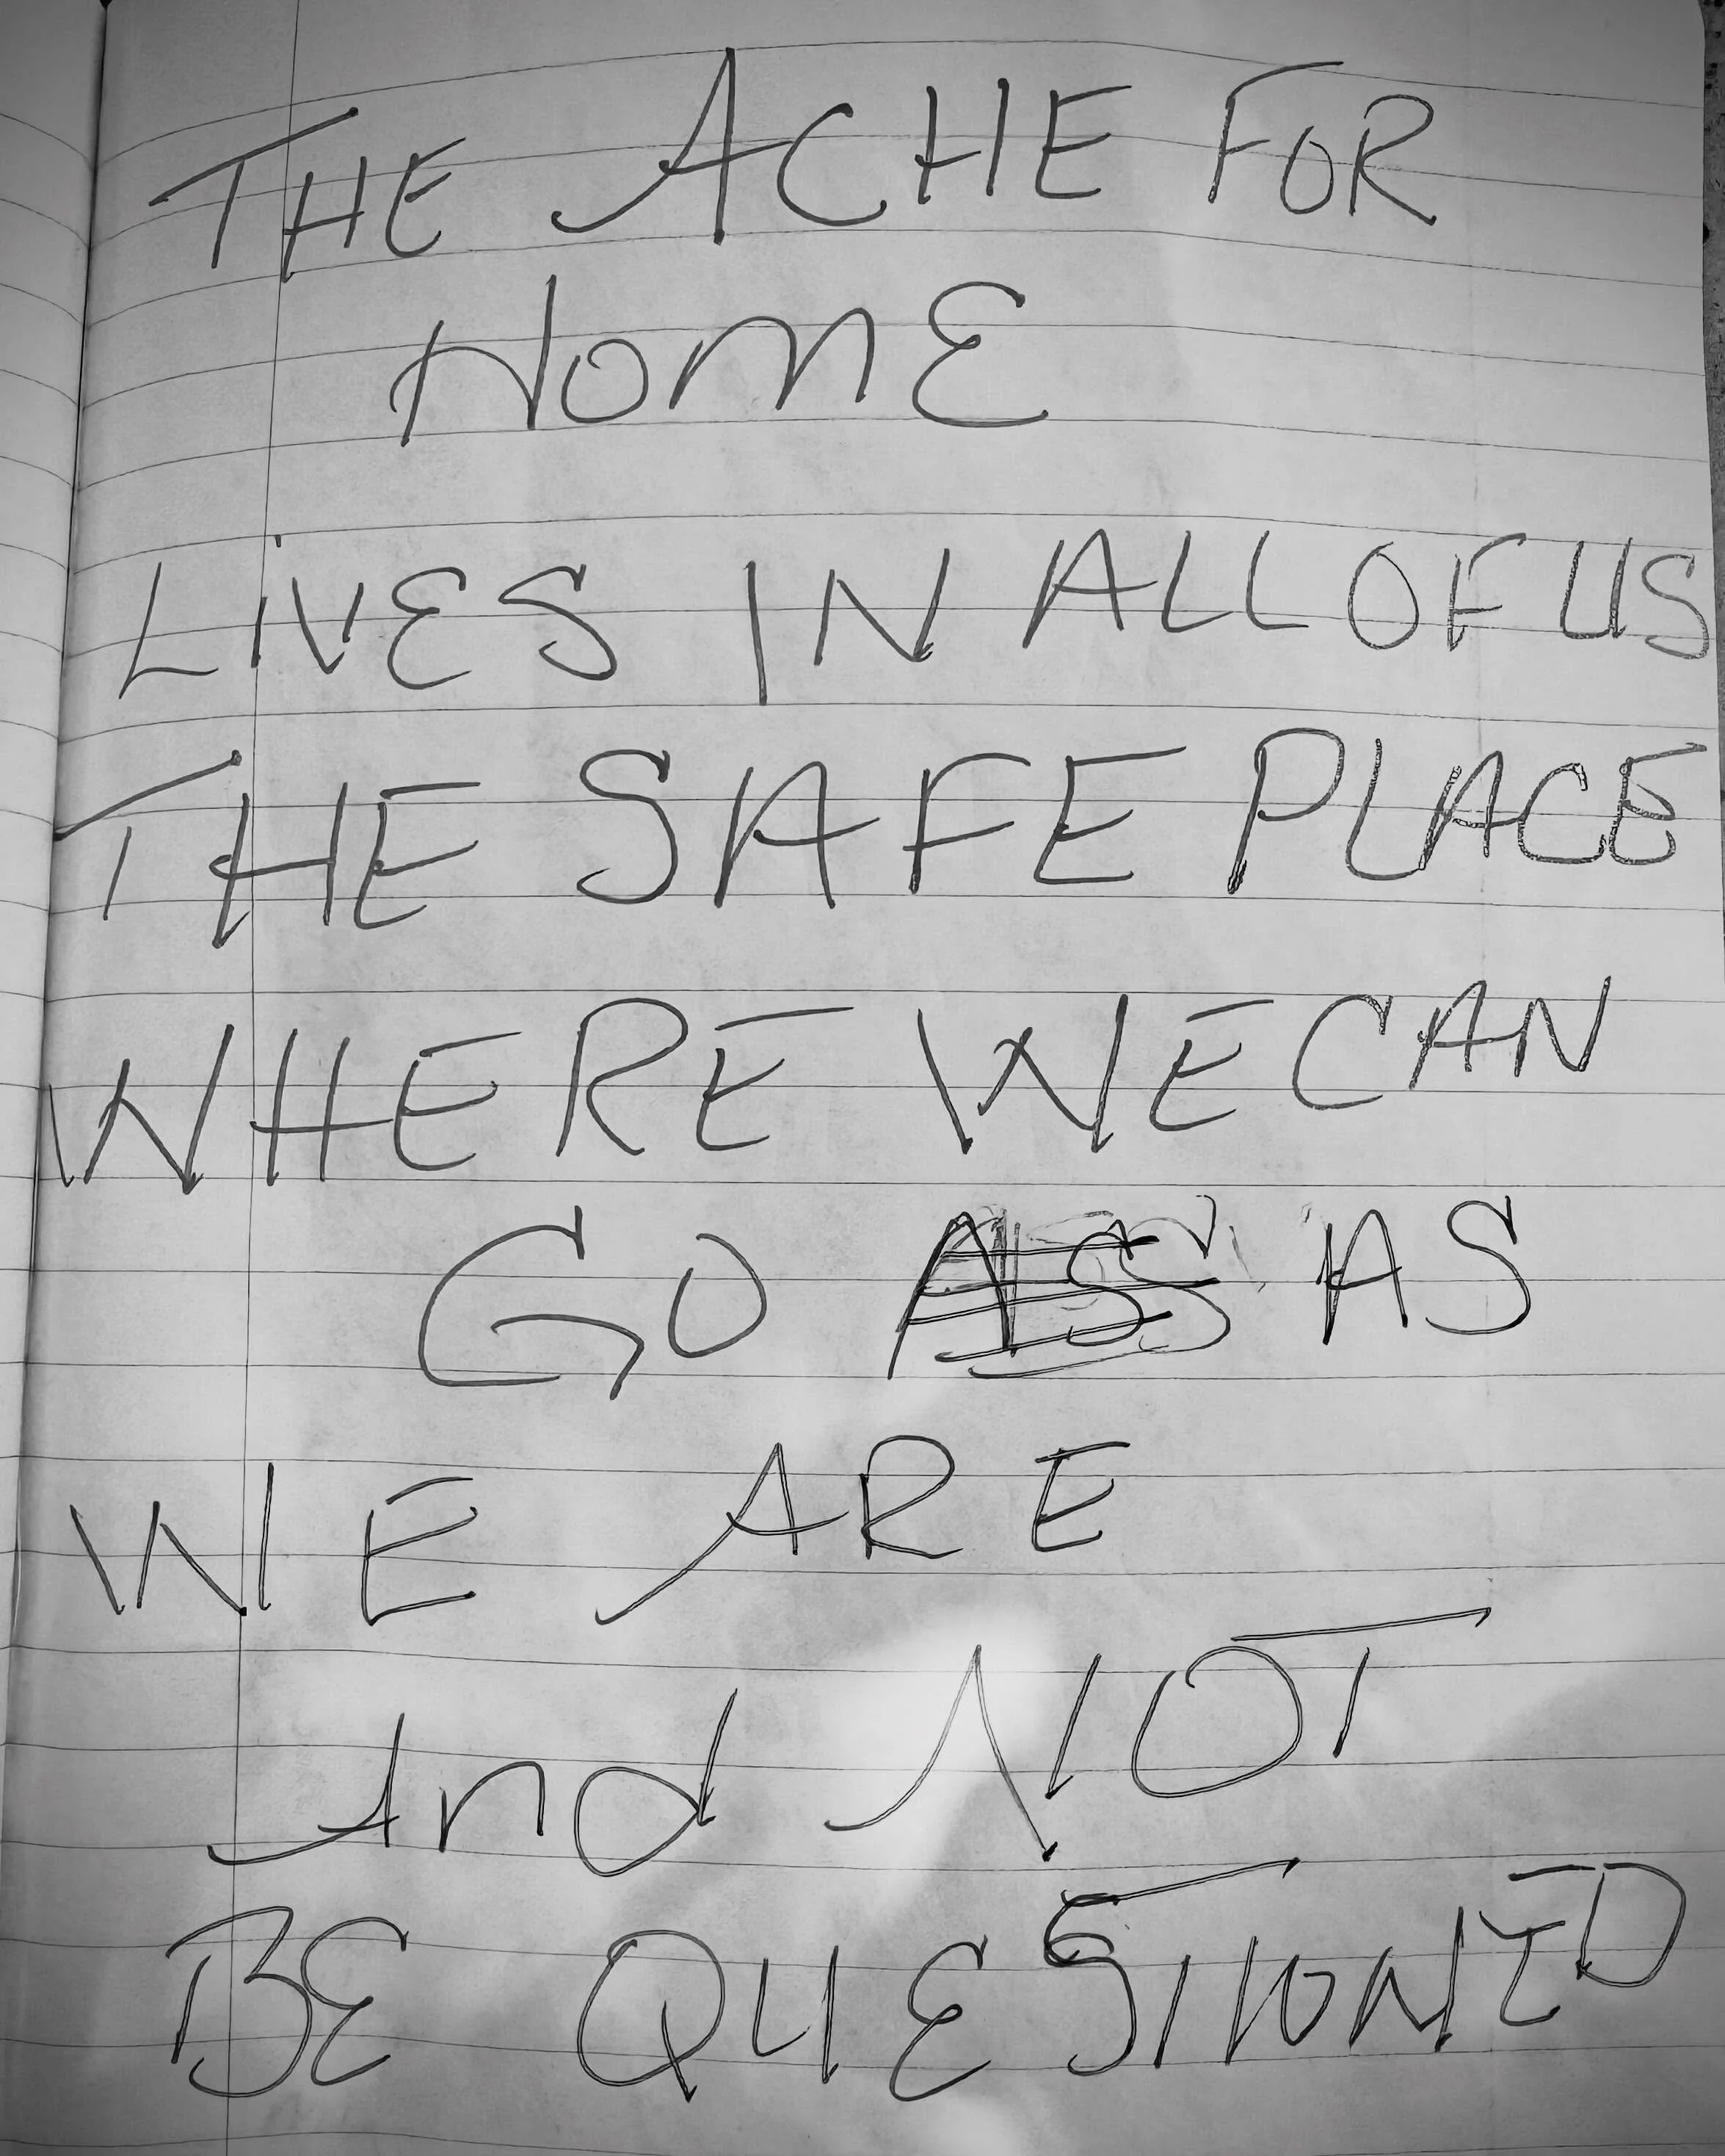 THE ACHE FOR
HOME
LiVES IN ALL OF US
THE SAFE PLACE
WHERE WE CAN
GO ASS AS
WE ARE
And NOT
BE QUESTIONED